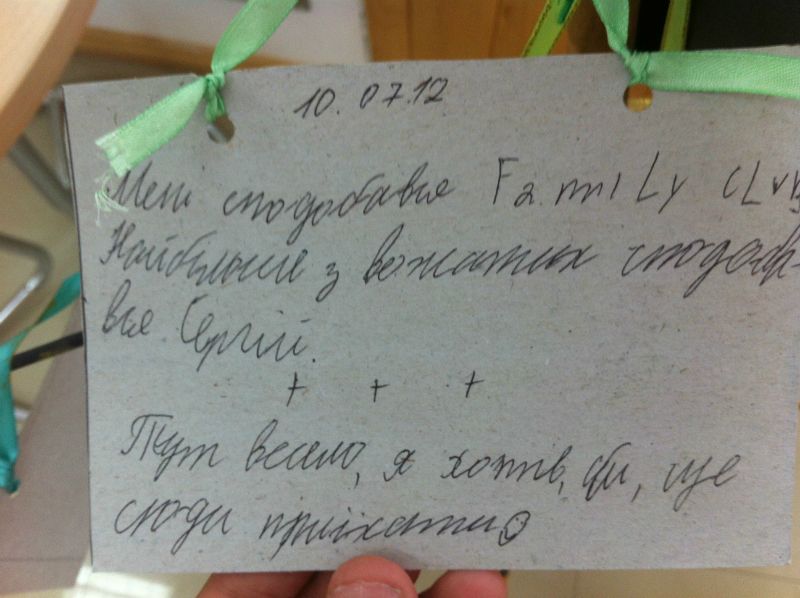 10.07.12
Мені сподобався Family CLub
Найбільше з вожатих сподоба-
вся Сергій.
+ + +
Тут весело, я хотів, би, ще
сюди приїхати☺